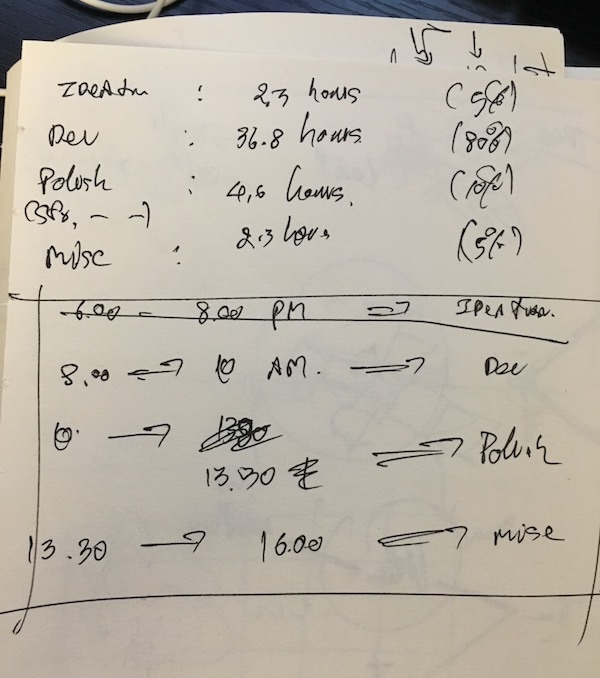 Ideatn : 2,3 hours (5%)
Dev : 36.8 hours. (80%)
Polish : 4,6 hours. (10%)
(SFX, — —)
2.3 hours (5%)
Misc :
6.00 — 8.00 PM ⇒ Ideation.
8.00 → 10 AM. ⇒ Dev
10 → 13.30 ⇒ Polish
13.30 → 16.00 ⇒ Misc